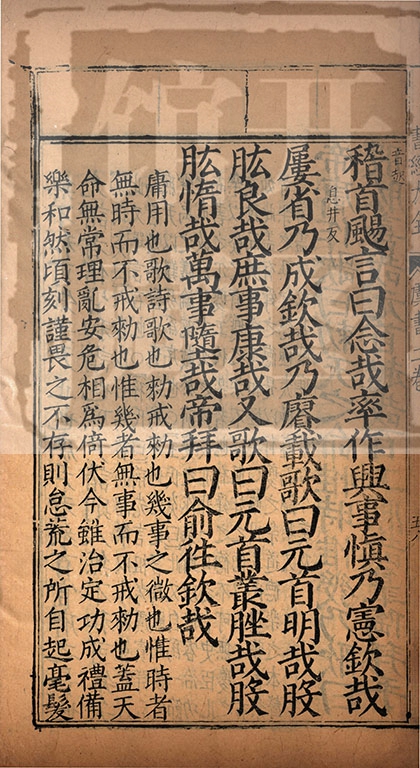 稽首颺言曰念哉率作興事愼乃憲欽哉
屢省乃成欽哉乃賡載歌曰元首明哉股
肱良哉庶事康哉又歌曰元首叢脞哉股
肱惰哉萬事墮哉帝拜曰俞徃欽哉
庸用也歌詩歌也勑戒勑也幾事之微也惟時者
無時而不戒勑也惟幾者無事而不戒勑也蓋天
命無常理亂安危相爲倚伏今雖治定功成禮備
樂和然頃刻謹畏之不存則怠荒之所自起毫髮